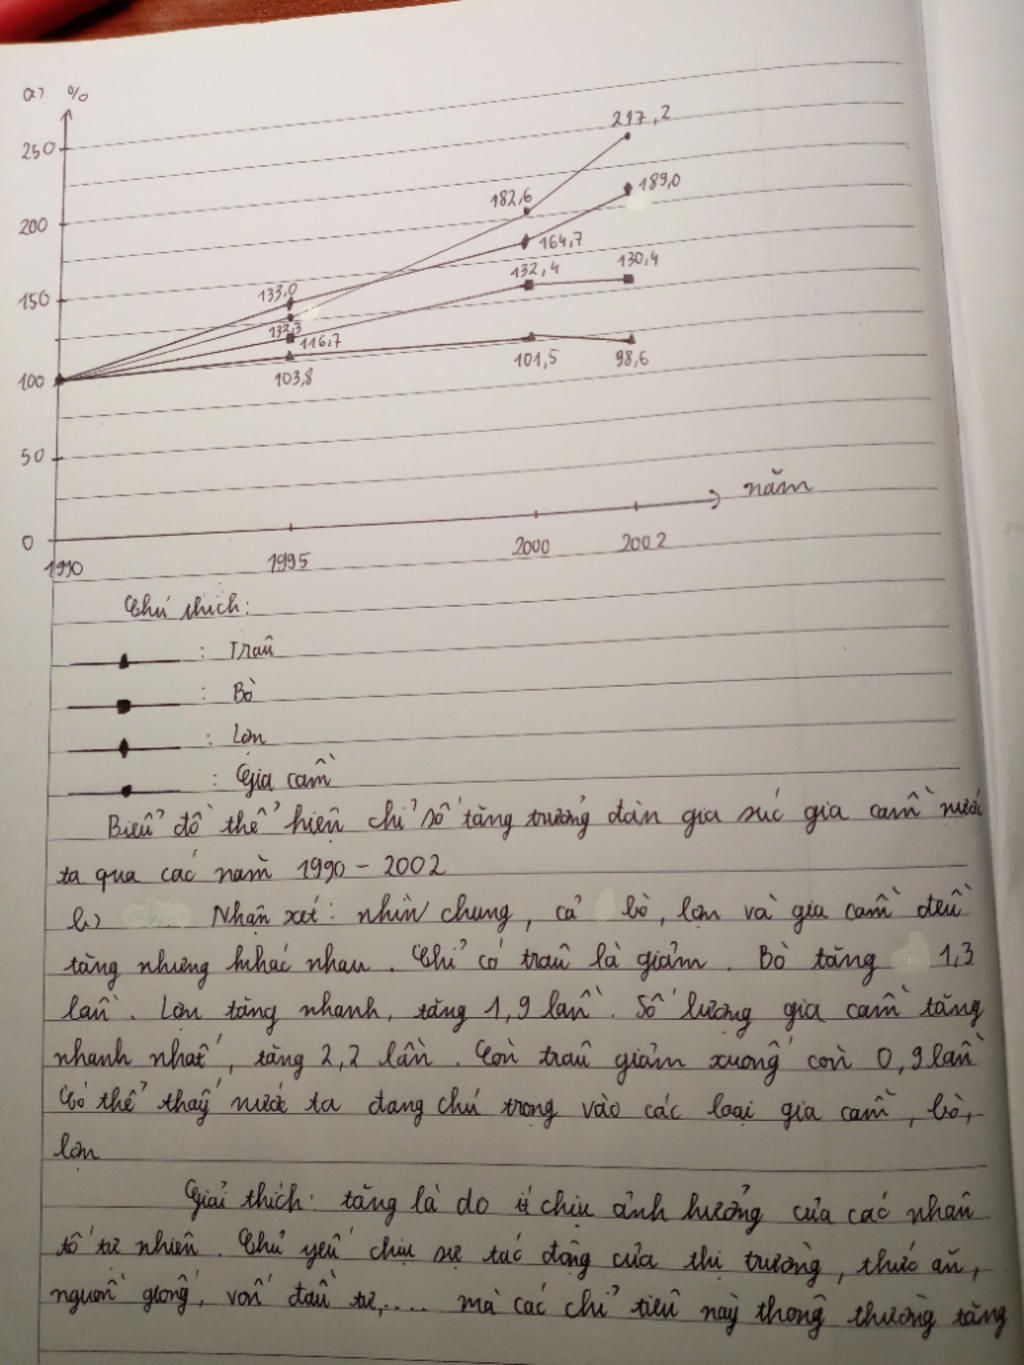 a) %
250
200
150
100
50
0
217,2
182,6
189,0
164,7
133,0
132,4
130,4
132,3
116,7
103,8
101,5
98,6
năm
1990 1995 2000 2002
Chú thích:
: Trâu
: Bò
: Lợn
: Gia cầm
Biểu đồ thể hiện chỉ số tăng trưởng đàn gia súc gia cầm nước
ta qua các năm 1990 - 2002
b) Nhận xét: nhìn chung, cả bò, lợn và gia cầm đều
tăng nhưng khác nhau. Chỉ có trâu là giảm. Bò tăng 1,3
lần. Lợn tăng nhanh, tăng 1,9 lần. Số lượng gia cầm tăng
nhanh nhất, tăng 2,2 lần. Còn trâu giảm xuống còn 0,9 lần
Có thể thấy nước ta đang chú trọng vào các loại gia cầm, bò,
lợn
Giải thích: tăng là do ít chịu ảnh hưởng của các nhân
tố tự nhiên. Chủ yếu chịu sự tác động của thị trường, thức ăn,
nguồn giống, vốn đầu tư,.... mà các chỉ tiêu này thông thường tăng